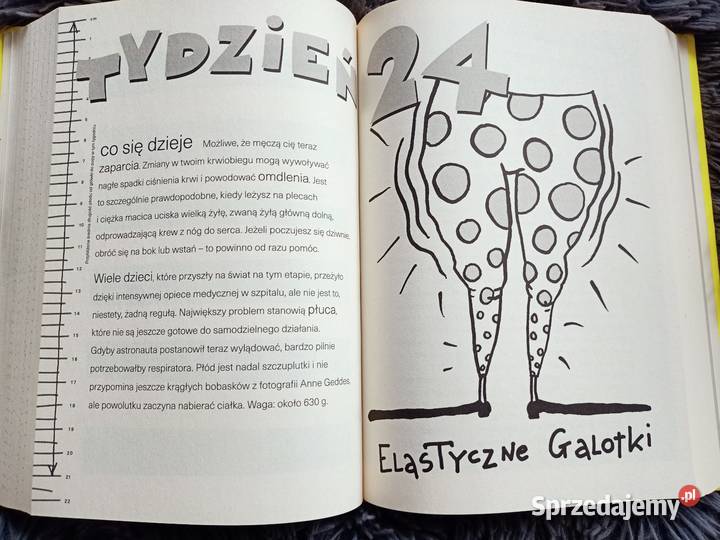 TYDZIEŃ 24
co się dzieje Możliwe, że męczą cię teraz
zaparcia. Zmiany w twoim krwiobiegu mogą wywoływać
nagłe spadki ciśnienia krwi i powodować omdlenia. Jest
to szczególnie prawdopodobne, kiedy leżysz na plecach
i ciężka macica uciska wielką żyłę, zwaną żyłą główną dolną,
odprowadzającą krew z nóg do serca. Jeżeli poczujesz się dziwnie,
obróć się na bok lub wstań – to powinno od razu pomóc.
Wiele dzieci, które przyszły na świat na tym etapie, przeżyło
dzięki intensywnej opiece medycznej w szpitalu, ale nie jest to,
niestety, żadną regułą. Największy problem stanowią płuca,
które nie są jeszcze gotowe do samodzielnego działania.
Gdyby astronauta postanowił teraz wylądować, bardzo pilnie
potrzebowałby respiratora. Płód jest nadal szczuplutki i nie
przypomina jeszcze krągłych bobasków z fotografii Anne Geddes,
ale powolutku zaczyna nabierać ciałka. Waga: około 630 g.
ELASTYCZNE GALOTKI
Sprzedajemy.pl